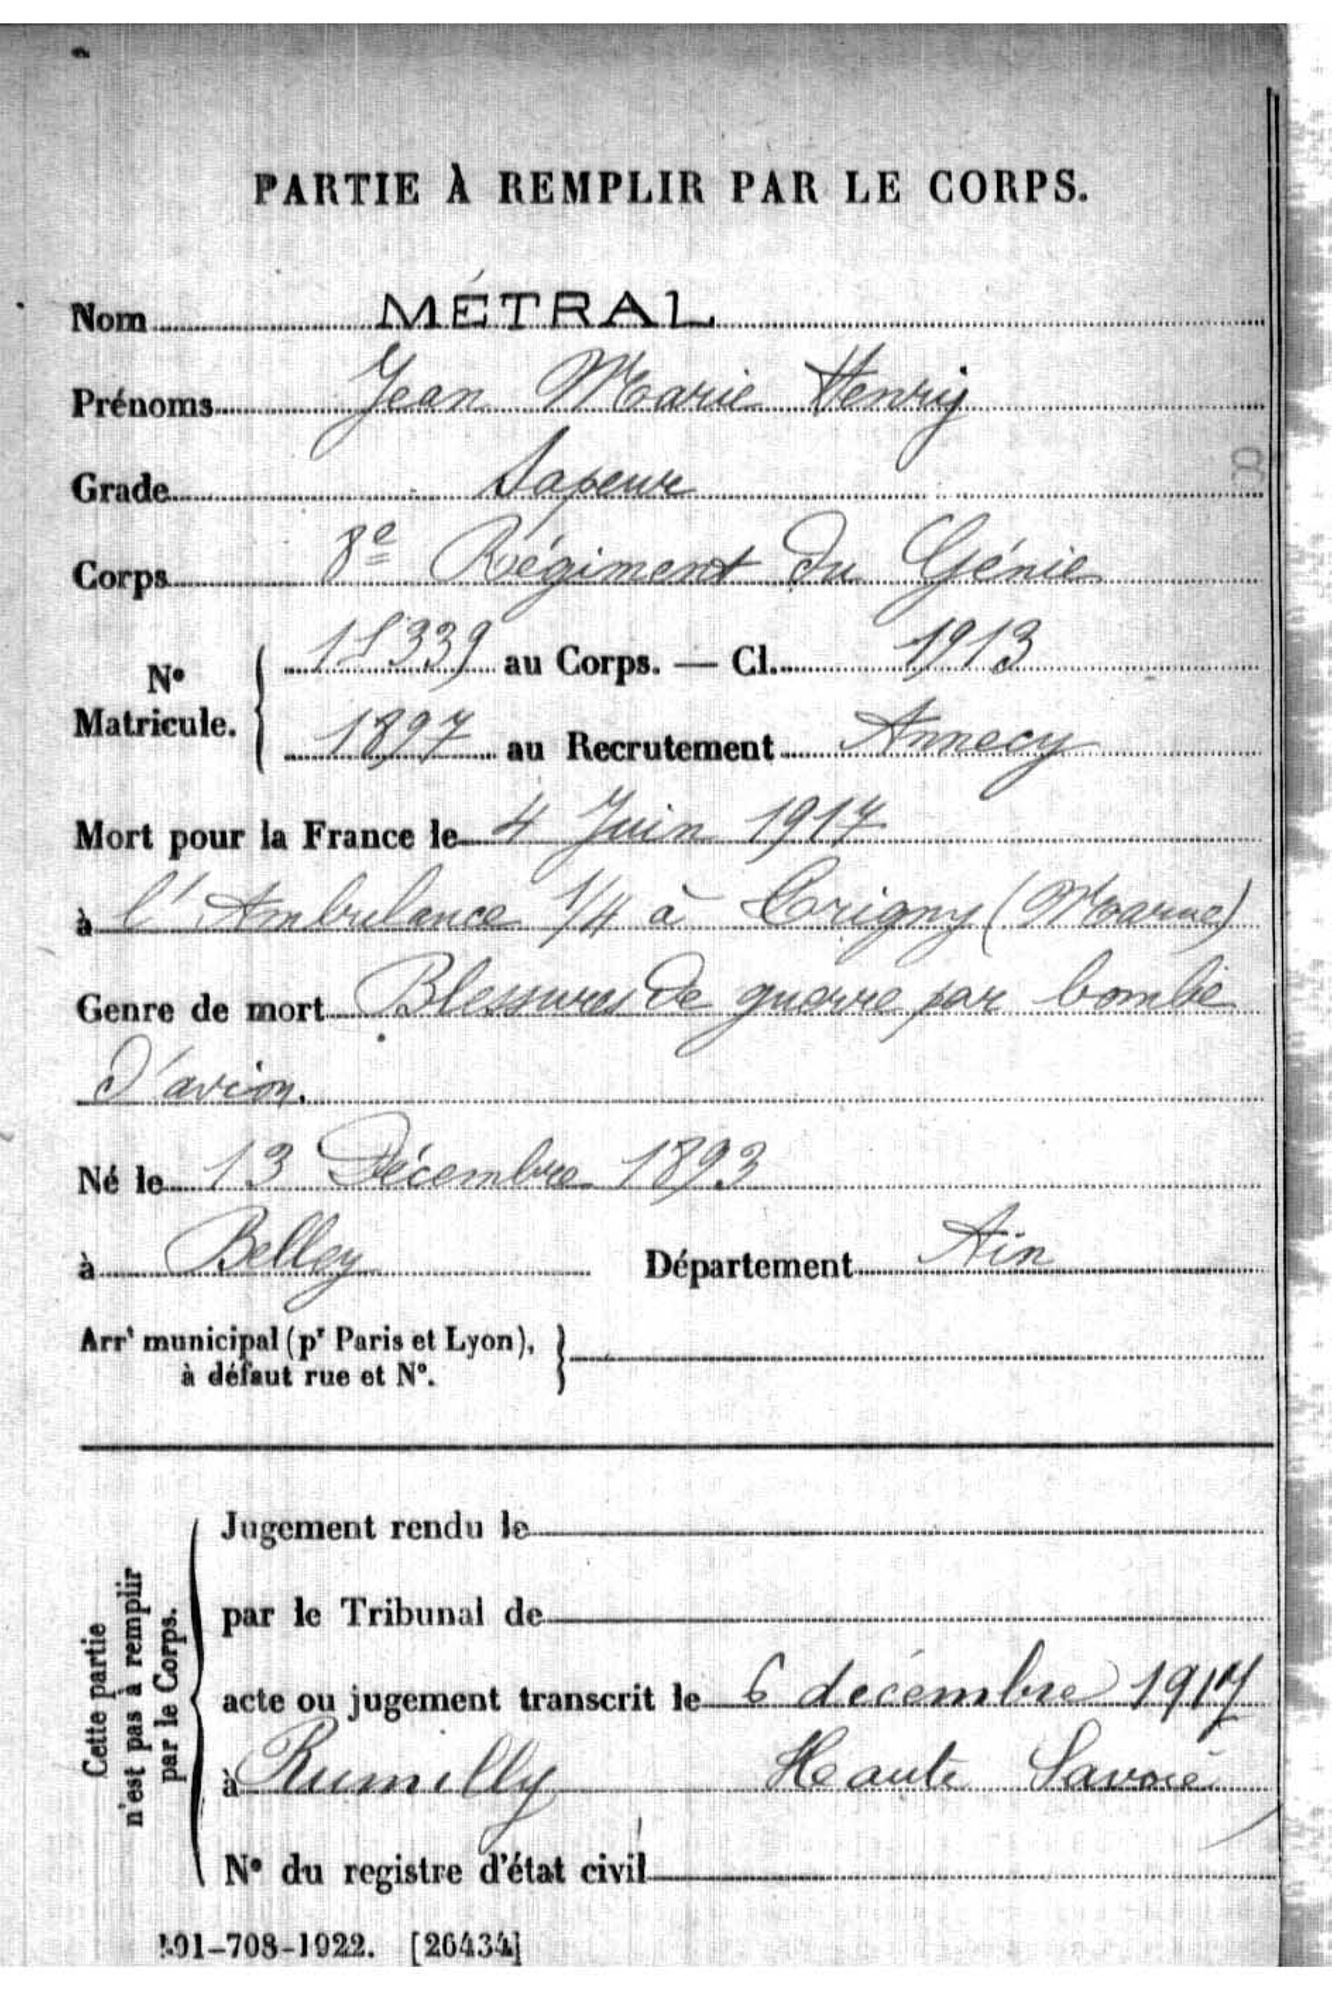 PARTIE À REMPLIR PAR LE CORPS.
Nom MÉTRAL
Prénoms Jean Marie Henry
Grade Sapeur
8
Corps 8e Régiment du Génie
N° Matricule. 15339 au Corps. — Cl. 1913
1897 au Recrutement Annecy
Mort pour la France le 4 Juin 1917
à l'Ambulance 1/4 à (Marne)
Genre de mort Blessures de guerre par bombe
d'avion.
Né le 13 Décembre 1893
à Belley Département Ain
Arrt municipal (pr Paris et Lyon),
à défaut rue et N°.
Cette partie
n'est pas à remplir
par le Corps.
Jugement rendu le
par le Tribunal de
acte ou jugement transcrit le 6 décembre 1917
à Rumilly Haute Savoie
N° du registre d'état civil
01-708-1922. [26434]